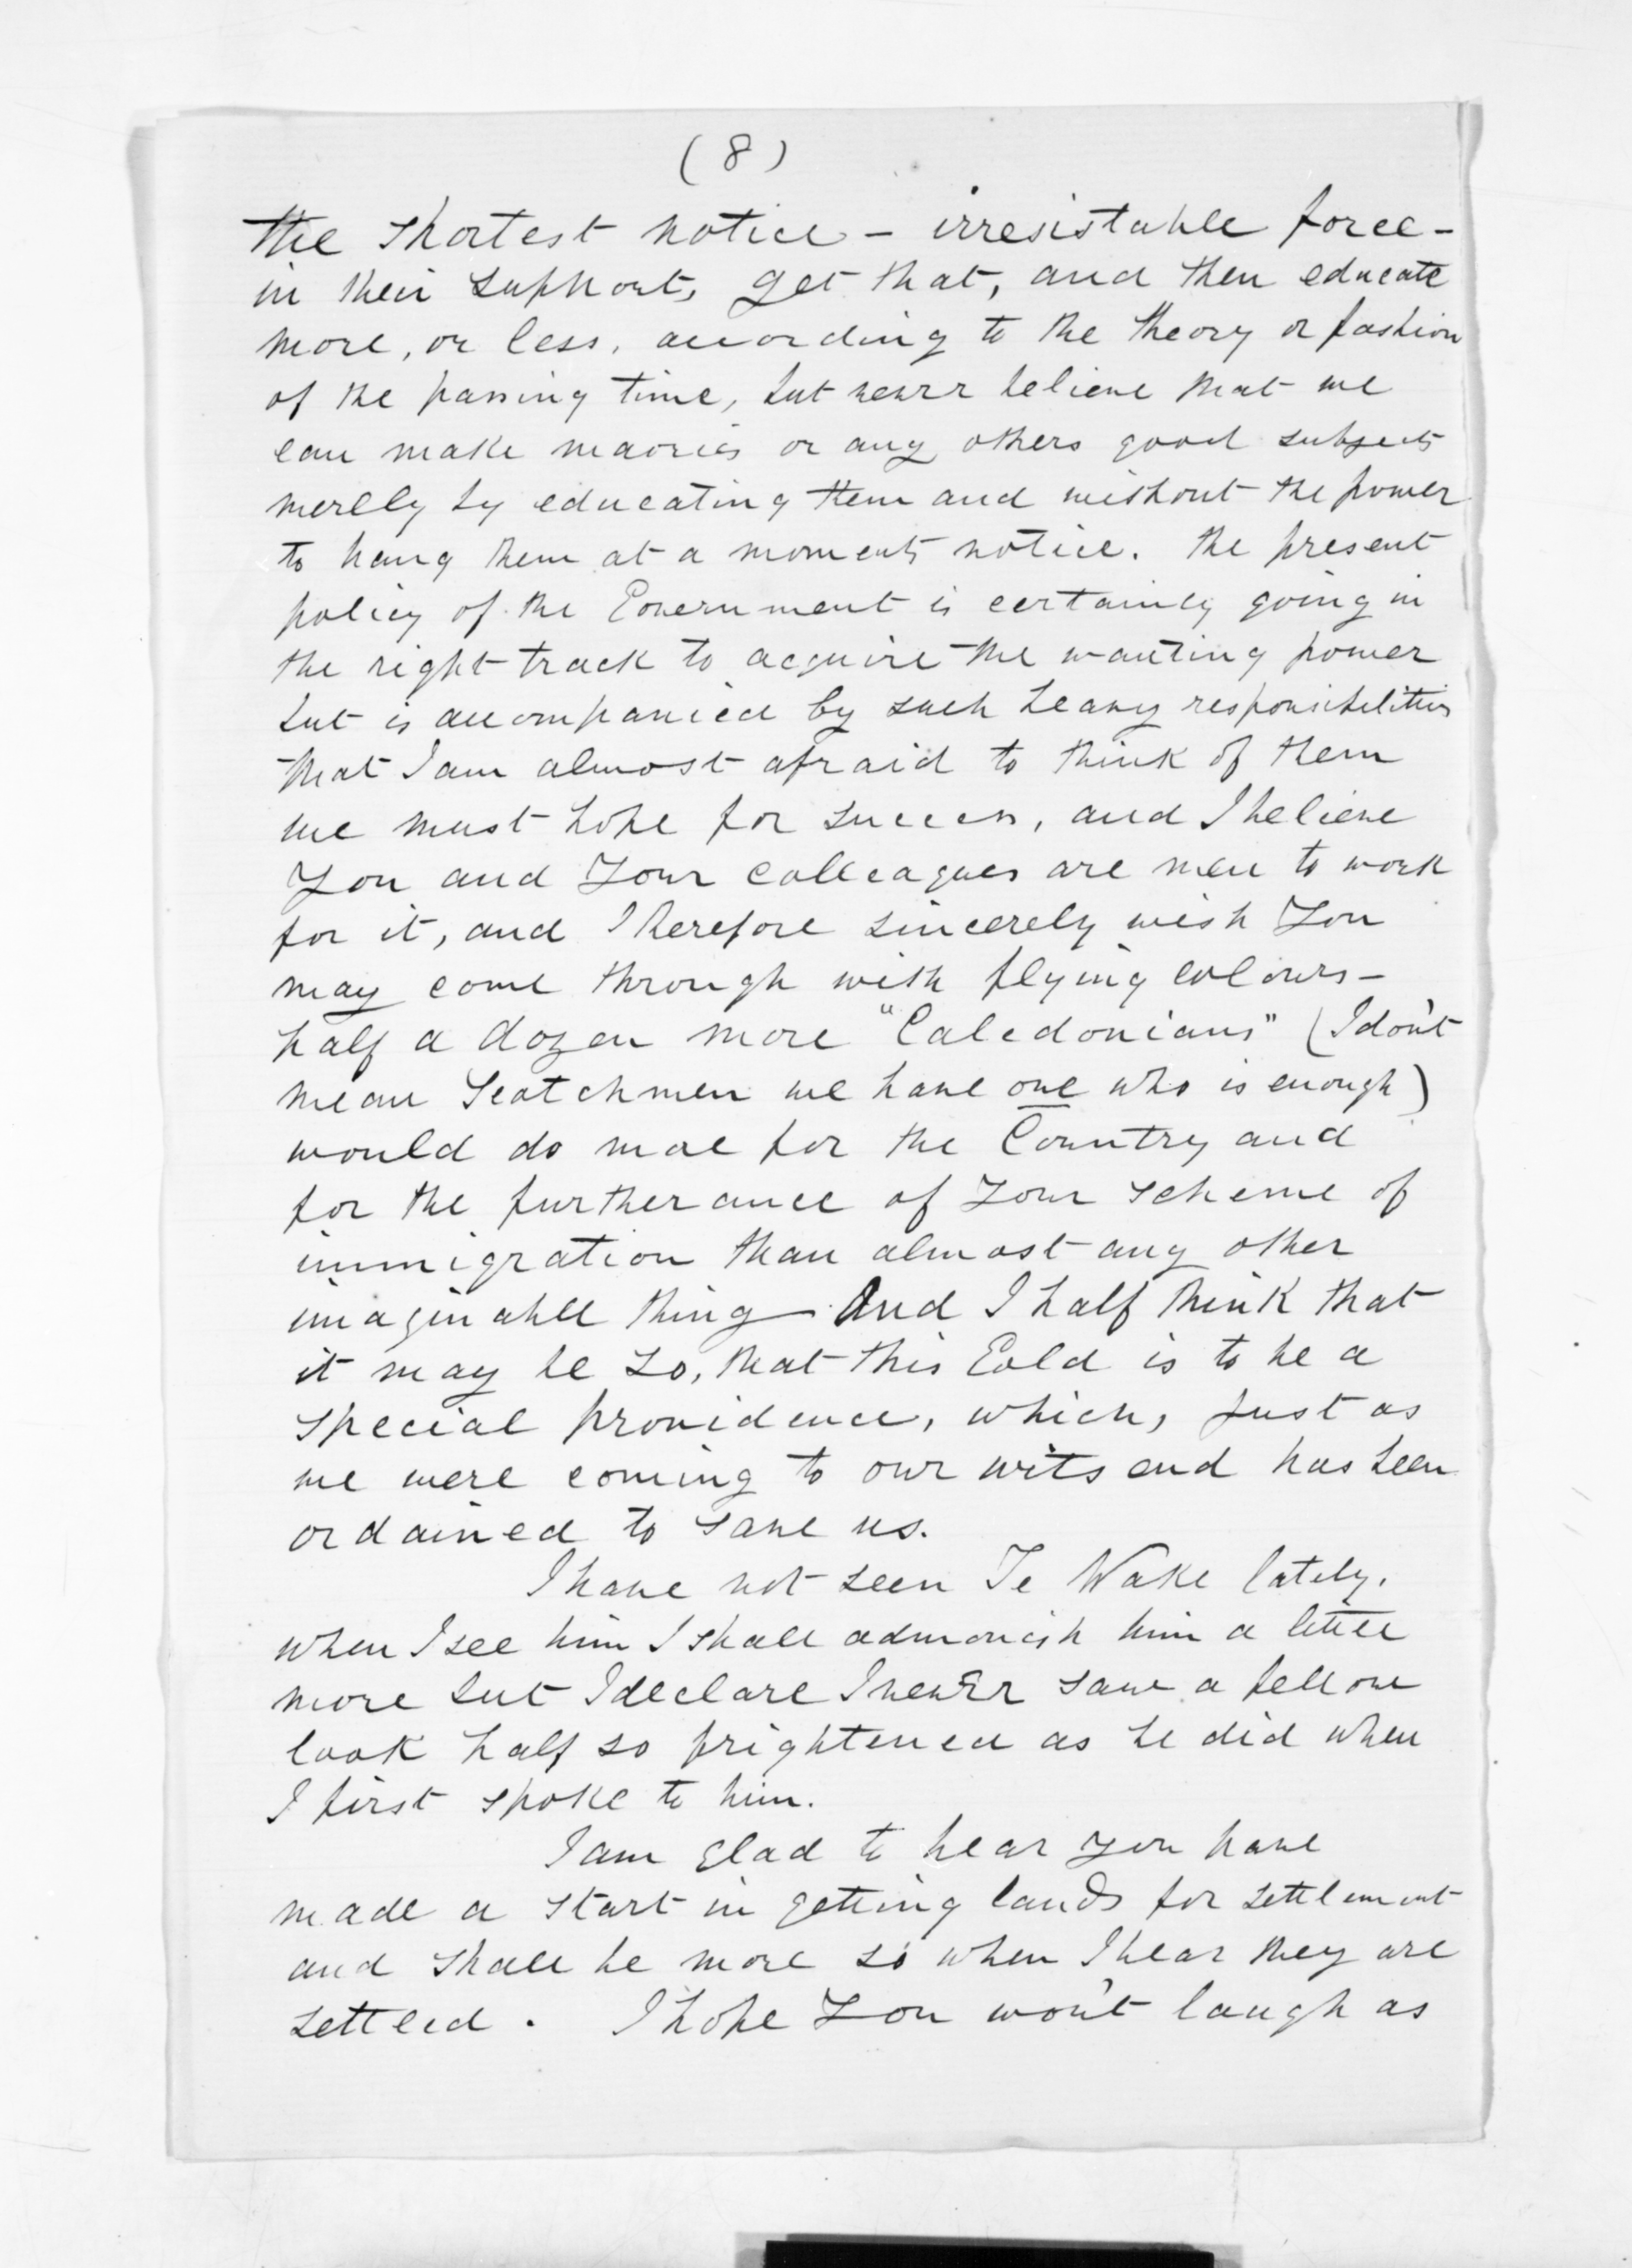 (8)
the shortest notice - irresistable force -
in their support, get that, and then educate
more, or less, according to the theory or fashion
of the passing time, but never believe that we
can make maories or any others good subjects
merely by educating them and without the power
to hang them at a moments notice. the present
policy of the Government is certainly going in
the right track to acquire the wanting power
but is accompanied by such heavy responsibilities
that I am almost afraid to think of them
we must hope for success, and I believe
You and Your colleagues are men to work
for it, and I therefore sincerely wish You
may come through with flying colours -
half a dozen more "Caledonians" (I don't
mean Scotchmen we have one who is enough)
would do more for the Country and
for the furtherance of Your scheme of
immigration than almost any other
imaginable thing - And I half think that
it may be so, that this Gold is to be a
special providence, which, just as
we were coming to our wits end has been
ordained to save us.
I have not seen Te Wake lately.
when I see him I shall admonish him a little
more but I declare I never saw a fellow
look half so frightened as he did when
I first spoke to him.
I am glad to hear you have
made a start in getting lands for settlement
and shall be more so when I hear they are
settled. I hope You won't laugh as